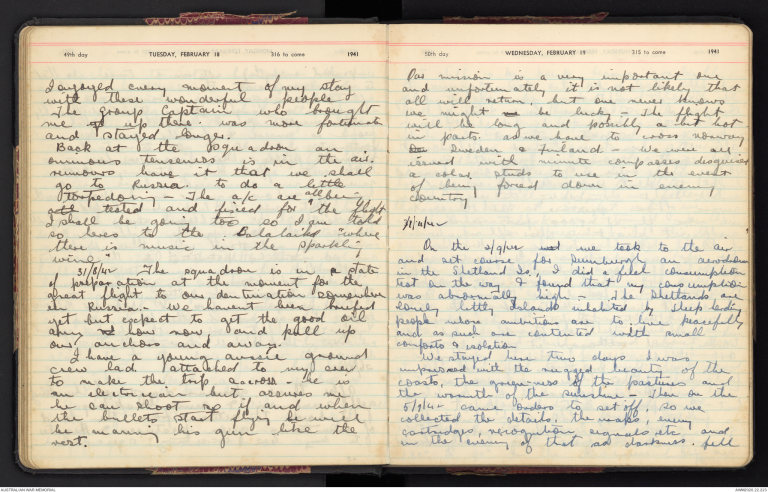 49th day TUESDAY, FEBRUARY 18 316 to come 1941
I enjoyed every moment of my stay
with these wonderful people
The Group Captain who brought
me up there was more fortunate
and stayed longer.
Back at the squadron an
ominous tenseness is in the air.
rumours have it that we shall
go to Russia to do a little
torpedoing – The a/c are all being
tested and fixed for "the flight
I shall be going too so I am told
so heres to the Balalaika "where
there is music in the sparkling
wine"
31/8/42 The squadron is in a state
of preparation at the moment for the
great flight to our destination somewhere
in Russia. We havent been briefed
yet but expect to get the good oil
any how now, and pull up
our anchors and away.
I have a young aussie ground
crew lad attached to my crew
to make the trip across. he is
an electrician but assures me
he can shoot if and when
the bullets start flying he will
be manning his gun like the
rest.
50th day WEDNESDAY, FEBRUARY 19 315 to come 1941
Our mission is a very important one
and unfortunately it is not likely that
all will return, but one never knows
we might be lucky – The flight
will be long and possibly a bit hot
in parts as we have to cross norway
Sweden & Finland – We were all
issued with minute compasses disguised
a collar studs to use in the event
of being forced down in enemy
country
On the 2/9/42 we took to the air
and set course for Sumburgh an aerodrome
in the Shetland Is, I did a fuel consumption
test on the way & found that my consumption
was abnormally high – The Shetlands are
lonely little islands inhabited by sheep herding
people whose ambitions are to live peacefully
and as such are contented with small
comforts & isolation
We stayed here two days I was
impressed with the rugged beauty of the
coasts, the greenness of the pastures and
the warmth of the sunshine – Then on the
5/9/42 came orders to set off, so we
collected the details, the maps, enemy
cartridges, recognition signals etc and
in the evening of that as darkness fell
AUSTRALIAN WAR MEMORIAL